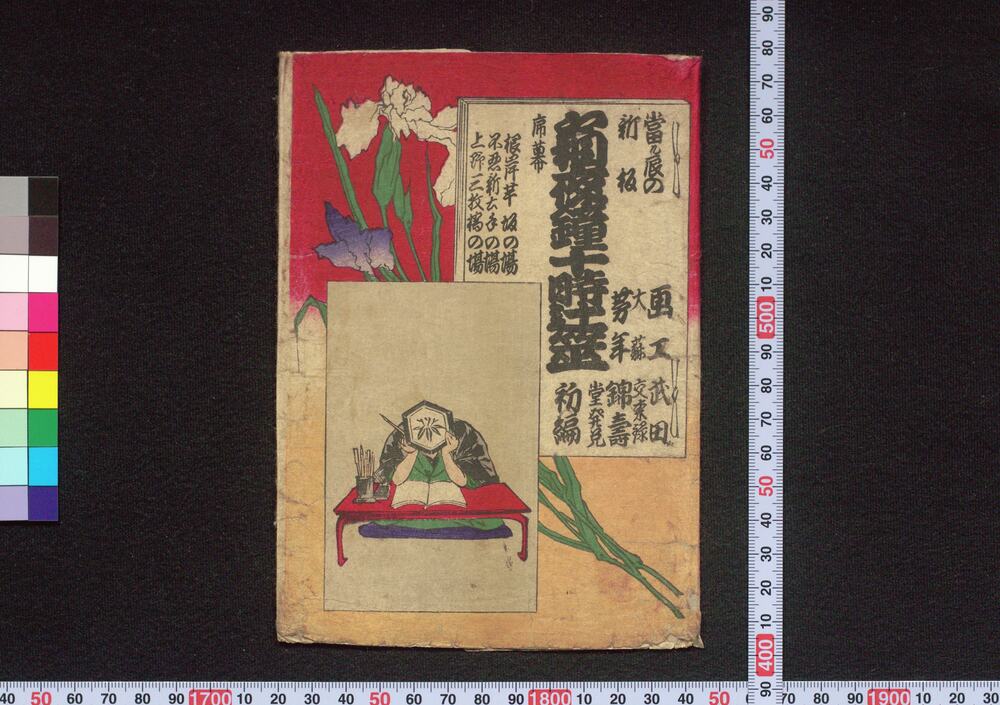 當る辰の
新板
霜夜鐘十時辻筮
序幕
根岸芋坂の場
不忍新土手の場
上野三枚橋の場
画工
大蘇
芳年
武田
交来録
錦壽
堂發兌
初編
40 50 60 70 80 90 1700 10 20 30 40 50 60 70 80 90 1800 10 20 30 40 50 70 80 90 1900 10 20 30
90 80 70 60 50 40 30 20 10 500 90 80 70 60 50 40 30 20 10 400 90